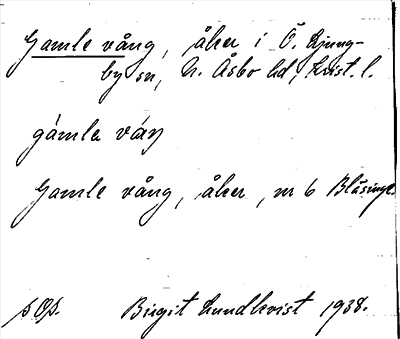 Gamle vång, åker i Ö. Ljung-
by sn, N. Åsbo hd, Krist. l.
gámla váŋ
Gamle vång, åker, nr 6 Blåsinge.
s Op. Birgit Lundkvist 1938.